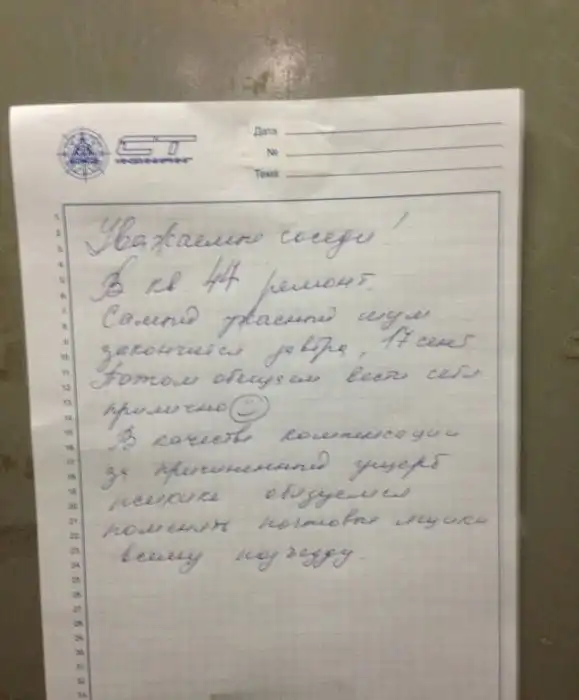 СТ
ИНЖИНИРИНГ
Дата
№
Тема
Уважаемые соседи!
В кв 44 ремонт.
Самый ужасный шум
закончится завтра, 17 сент
Потом обещаем вести себя
прилично
В качестве компенсации
за причиненный ущерб
психике обязуемся
поменять почтовые ящики
всему подъезду.